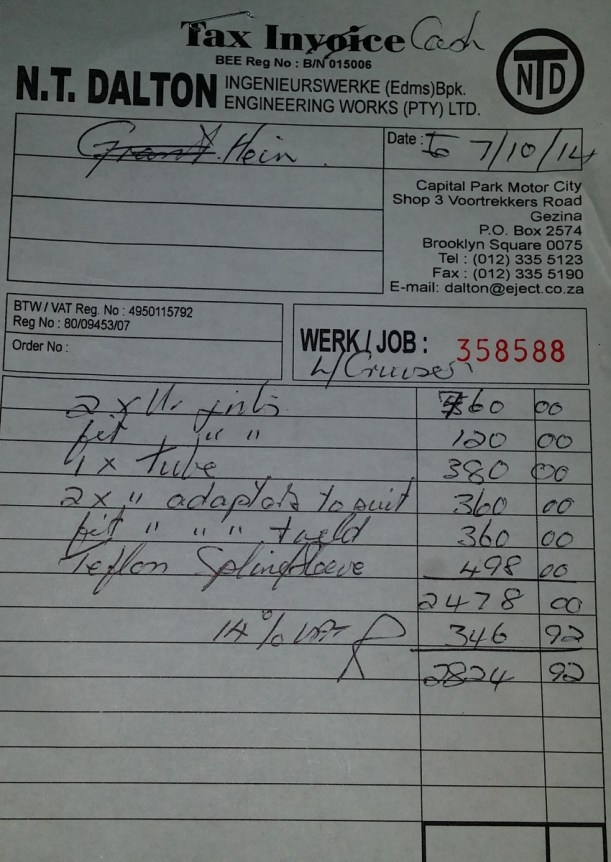 Tax Invoice Cash
BEE Reg No : B/N 015006
N.T. DALTON
INGENIEURSWERKE (Edms)Bpk.
ENGINEERING WORKS (PTY) LTD.
NTD
Grant Hein
Date : 7/10/14
Capital Park Motor City
Shop 3 Voortrekkers Road
Gezina
P.O. Box 2574
Brooklyn Square 0075
Tel : (012) 335 5123
Fax : (012) 335 5190
E-mail: dalton@eject.co.za
BTW / VAT Reg. No : 4950115792
Reg No : 80/09453/07
Order No :
WERK / JOB : 358588
L/Cruiser
2 x U. joints 760 00
fit " " 120 00
1 x Tube 380 00
2x " adaptors to suit 360 00
fit " " " + weld 360 00
Teflon Spline sleeve 498 00
2478 00
14% VAT 346 92
2824 92